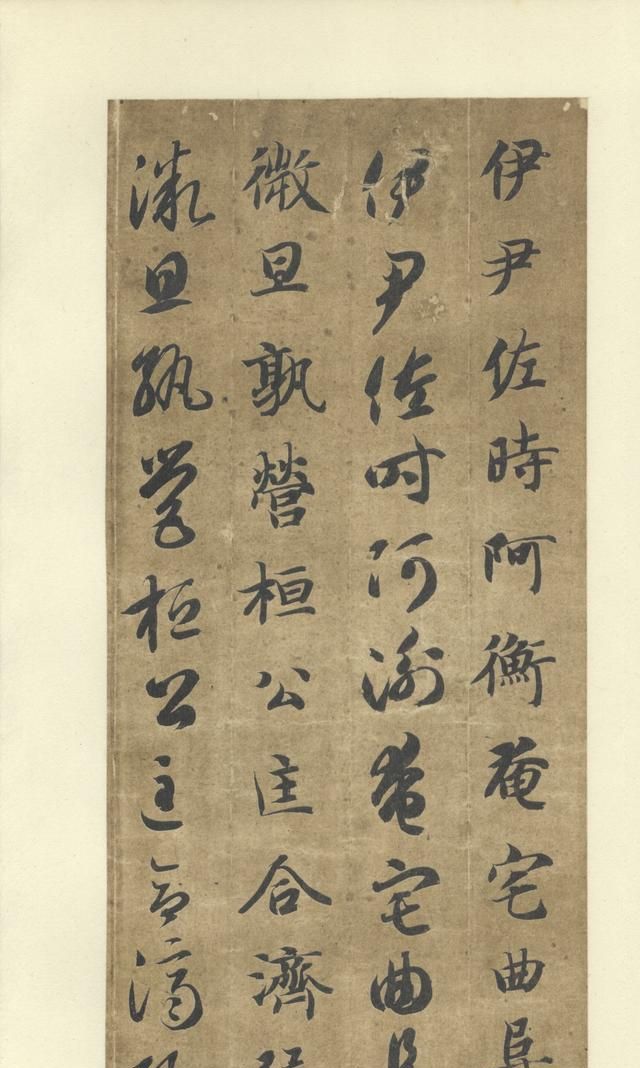 伊尹佐時阿衡奄宅曲阜
伊尹佐時阿衡奄宅曲阜
微旦孰營桓公匡合濟
微旦孰營桓公匡合濟